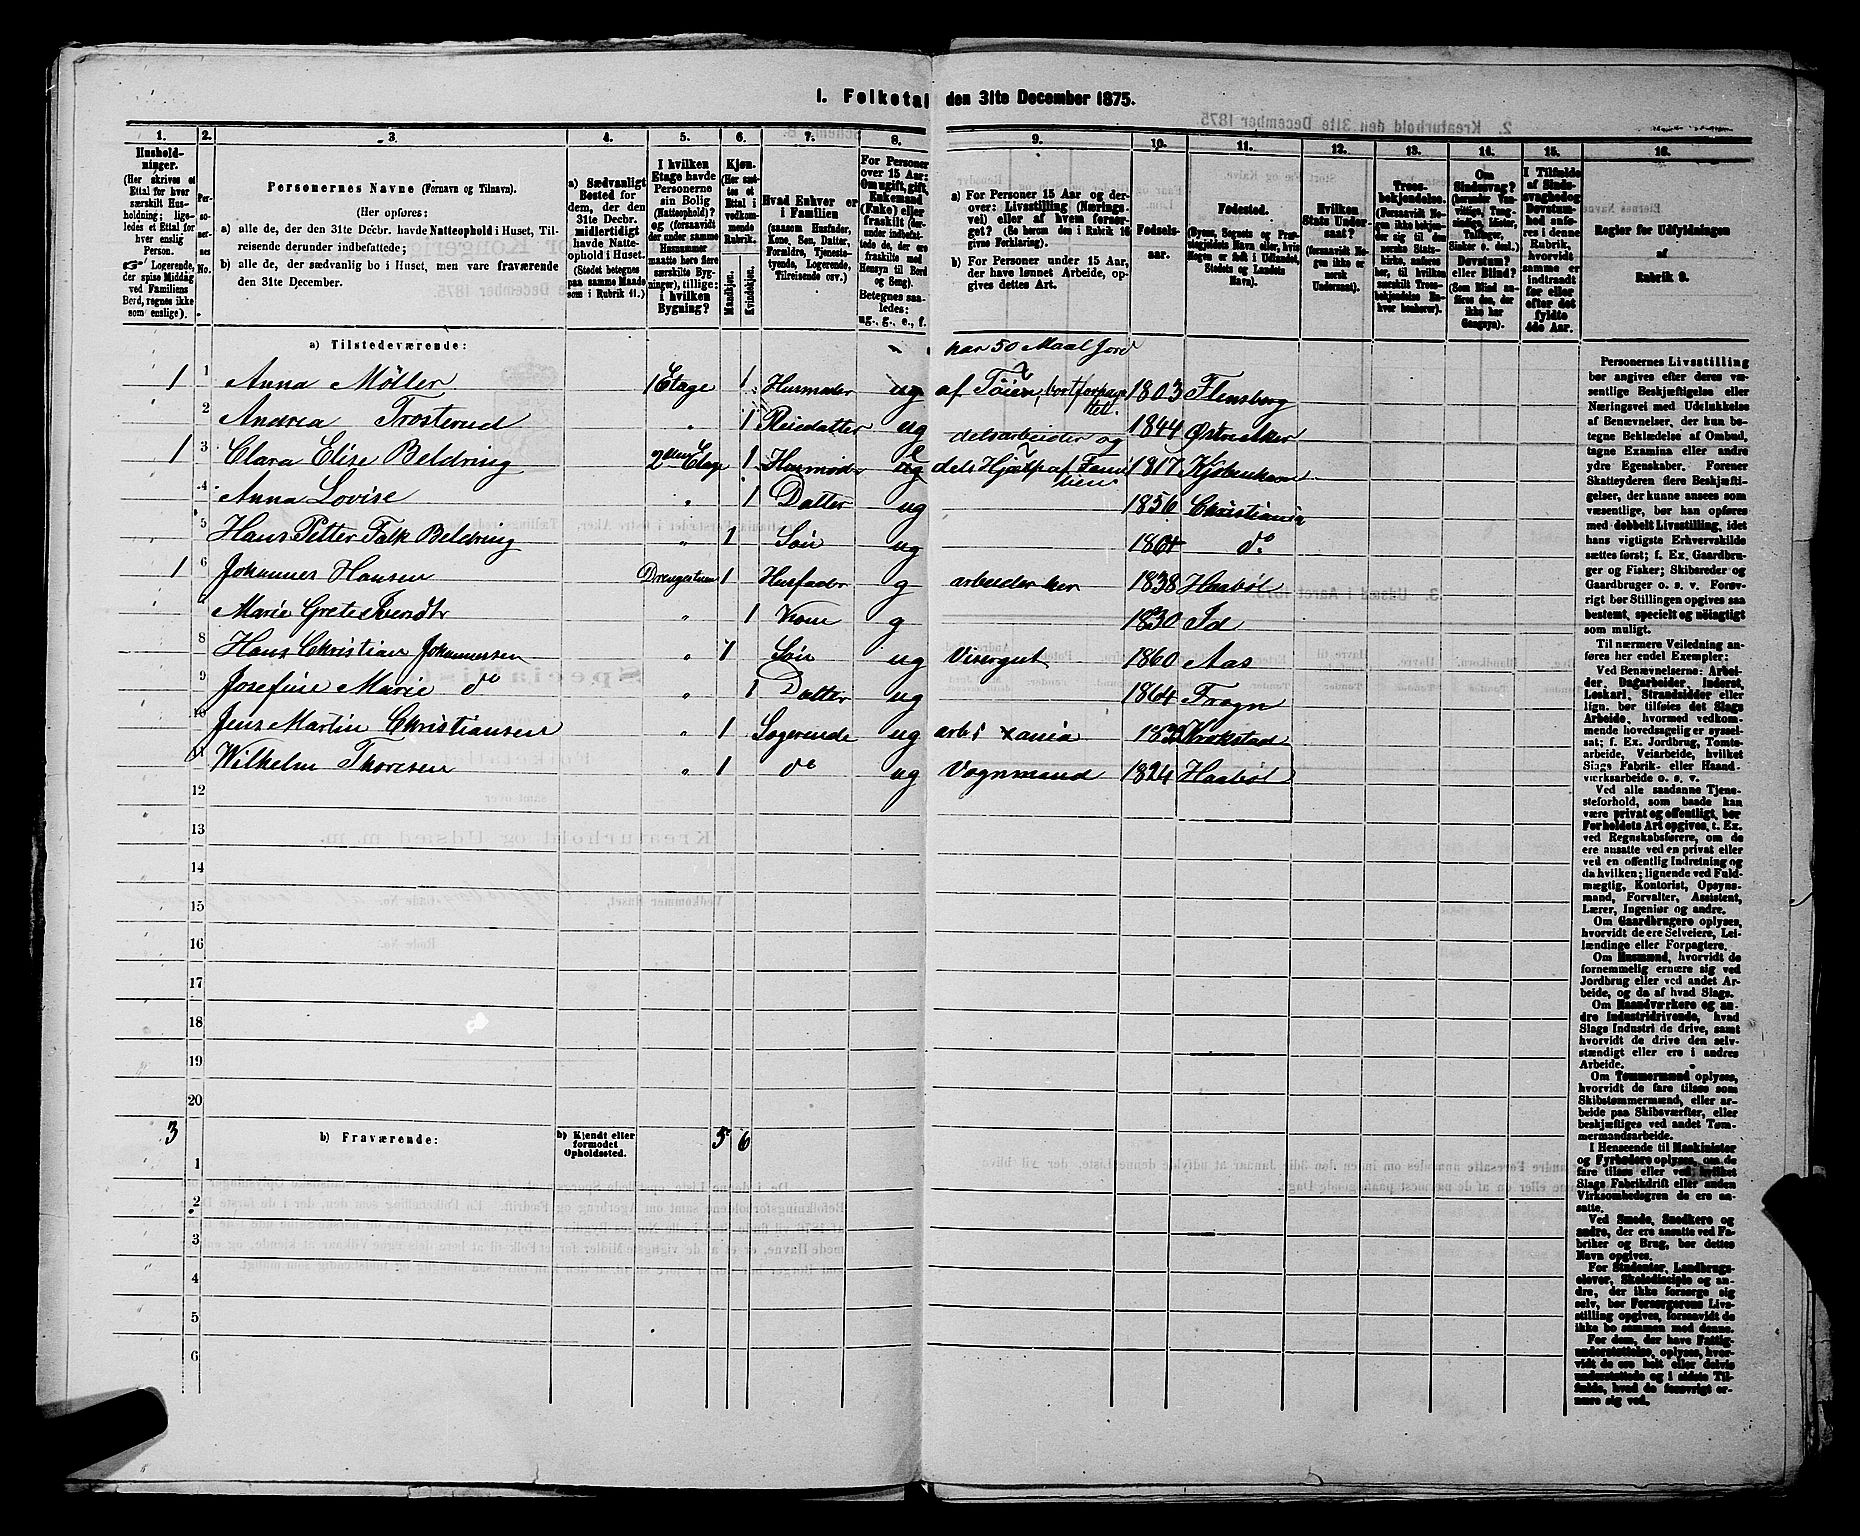 1. Folketal den 31te December 1875.
1. 2. 3. 4. 5. 6. 7. 8. 9. 10. 11. 12. 13. 14. 15. 16.
Hushold-
ninger.
(Her skrives et
Ettal for hver
særskilt Hus-
holdning; lige-
ledes et Ettal
for hver
enslig
Person.
Logerende,
der spise Middag
ved Familiens
Bord, regnes ikke
som enslige).
Per-
so-
ner-
nes
No.
Personernes Navne (Fornavn og Tilnavn).
(Her opføres:
a) alle de, der den 31te Decbr. havde Natteophold i Huset, Til-
reisende derunder indbefattede;
b) alle de, der sædvanlig bo i Huset, men vare fraværende
den 31te December.
a) Sædvanligt
Bosted for
dem, der den
31te Decbr.
midlertidigt
havde Natte-
ophold i Huset.
(Stedet betegnes
paa samme Maade
som i Rubrik 11.)
I hvilken
Etage havde
Personerne
sin Bolig
(Natteophold)?
og (forsaavidt
der under samme
Husnummer
maatte høre flere
særskilte Byg-
ninger), tillige:
i hvilken
Bygning?
Kjøn.
(Her sæt-
tes et
Ettal i
vedkom-
mende
Rubrik.
Mandkjøn.
Kvindekjøn.
Hvad Enhver er
i Familien
(saasom Husfader,
Kone, Søn, Datter,
Forældre, Tjeneste-
tyende, Logerende,
Tilreisende osv.)
For Personer
over 15 Aar:
Om ugift, gift,
Enkemand
(Enke) eller
fraskilt (der-
under indbefat-
tede de, der ere
fraskilte med
Hensyn til Bord
og Seng).
Betegnes saa-
ledes:
ug., g., e., f.
a) For Personer 15 Aar og der-
over: Livsstilling (Nærings-
vei) eller af hvem forsør-
get? (Se herom den i Rubrik 16
givne Forklaring).
b) For Personer under 15 Aar,
der have lønnet Arbeide, op-
gives dettes Art.
Fødsels-
aar.
Fødested.
(Byens, Sognets og Præ-
stegjeldets Navn eller, hvis
Nogen er født i Udlandet,
Stedets og Landets
Navn).
Hvilken
Stats Under-
saat?
(forsaavidt No-
gen ikke er
norsk
Undersaat).
Troes-
bekjendelse.
(Forsaavidt No-
gen ikke bekjen-
der sig til den
norske Stats-
kirke, anføres
her, til hvilken
særskilt Troes-
bekjendelse En-
hver henhører).
Om
Sindssvag?
(herunder Van-
vittige, Tung-
sindige, Idioter,
Tullinger,
Sinker o. desl.)
Døvstum?
eller Blind?
(Som Blind an-
føres den, der
ikke har
Gangsyn).
I Tilfælde
af Sinds-
svaghed og
Døvstum-
hed anfø-
res i denne
Rubrik,
hvorvidt
samme er
indtraadt
før eller
efter det
fyldte
4de Aar.
Regler for Udfyldningen
af
Rubrik 9.
a) Tilstedeværende:
har 50 Maal Jord
1 1 Anna Møller 1 Etage 1 Husmoder ug af Töien, bortforpag- 1803 Flensborg
tet.
2 Andrea Trosterud " 1 Pleiedatter ug 1844 Østre Aker
delsarbeider og
1 3 Clara Elise Beldring 2den Etage 1 Husmoder e dels Hjælp af Fami- 1817 Kjøbenhavn
lien
4 Anna Lovise " 1 Datter ug 1856 Christiania
5 Hans Petter Falk Beldring " 1 Søn ug 1864 do
1 6 Johannes Hansen Drengestuen 1 Husfader g arbeider her 1838 Haabøl
Marie Grete " 1 Kone g 1830 Id
8 Hans Christian Johannesen " 1 Søn ug Visergut 1860 Aas
9 Josefine Marie do " 1 Datter ug 1864 Frogn
10 Jens Martin Christiansen " 1 Logerende ug arb i Xania Krokstad
11 Wilhelm Thoresen " 1 do ug Vognmand 1824 Haabøl
12
13
14
15
16
17
18
19
20
3 b) Fraværende: b) Kjendt eller
formodet
Opholdssted. 5 6
1
2
3
4
5
6
Personernes Livsstilling
bør angives efter deres væ-
sentlige Beskjæftigelse eller
Næringsvei med Udelukkelse
af Benævnelser, der kun be-
tegne Beklædelse af Ombud,
tagne Examina eller andre
ydre Egenskaber. Forener
Skatteyderen flere Beskjæfti-
gelser, der kunne ansees som
væsentlige, bør han opføres
med dobbelt Livsstilling, idet
hans vigtigste Erhvervskilde
sættes først; f. Ex. Gaardbru-
ger og Fisker; Skibsreder og
Gaardbruger o. s. v. Forøv-
rigt bør Stillingen opgives saa
bestemt, specielt og nøiagtigt
som muligt.
Til nærmere Veiledning an-
føres her endel Exempler:
Ved Benævnelserne: Arbei-
der, Dagarbeider, Inderst,
Løskarl, Strandsidder eller
lign. bør tilføies det Slags
Arbeide, hvormed vedkom-
mende hovedsagelig er syssel-
sat; f. Ex. Jordbrug, Tomte-
arbeide, Veiarbeide, hvilket
Slags Fabrik- eller Haand-
værksarbeide o. s. v.
Ved alle saadanne Tjene-
steforhold, som baade kan
være privat og offentligt, bør
Forholdets Art opgives, t. Ex.
ved Regnskabsførere, om de
ere ansatte ved en privat eller
ved en offentlig Indretning og
da hvilken; lignende ved Fuld-
mægtig, Kontorist, Opsyns-
mand, Forvalter, Assistent,
Lærer, Ingeniør og andre.
Om Gaardbrugere oplyses,
hvorvidt de ere Selveiere, Lei-
lændinge eller Forpagtere.
Om Husmænd, hvorvidt de
fornemmelig ernære sig ved
Jordbrug eller ved andet Ar-
beide, og da af hvad Slags.
Om Haandværkere og an-
dre Industridrivende, hvad
Slags Industri de drive, samt
hvorvidt de drive den selv-
stændigt eller ere i andres
Arbeide.
Om Tømmermænd oplyses,
hvorvidt de fare tilsøs som
Skibstømmermænd, eller ar-
beide paa Skibsværfter, eller
beskjæftiges ved andet Tøm-
mermandsarbeide.
I Henseende til Maskinister
og Fyrbødere oplyses, om de
fare tilsøs eller ved hvilket
Slags Fabrikdrift eller anden
Virksomhedsgren de ere an-
satte.
Ved Smede, Snedkere og
andre, der ere ansatte ved Fa-
briker og Brug, bør dettes
Navn opgives.
For Studenter, Landbrugs-
elever, Skoledisciple og an-
dre, der ikke forsørge sig
selv, bør Forsørgerens Livs-
stilling opgives, forsaavidt de
ikke bo sammen med denne.
For dem, der have Fattig-
understøttelse, oplyses, hvor-
vidt de ere helt eller delvis
understøttede og i sidste Til-
fælde, hvad de forøvrigt er-
nære sig ved.